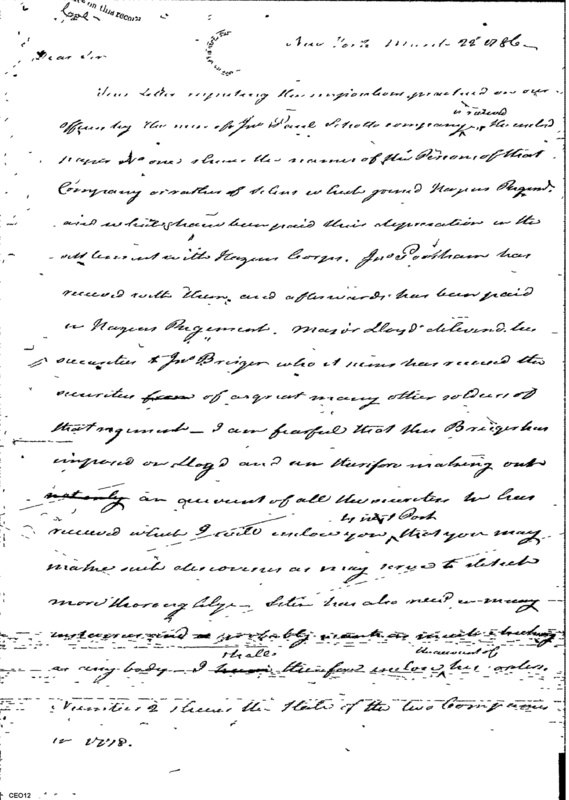 on this record
New York March 22d 1786
Dear Sir
Your Letter respecting the impositions practiced on our
office by the men of Jno Paul Schotts company is received the enclosed
paper No one shews the names of the Persons of that
Company or rather of Selins which joined Hazens Regimt.
and which have been paid their depreciation in the
settlement with Hazens Corps. Jno has
received with them and afterwards has been paid
in Hazens Regiment. Major Lloyd delivered his
securities to Jno who it seems has received the
securities from of a great many other soldiers of
that regiment — I am fearful that this has
imposed on Lloyd and am therefore making out
not only an account of all the securities he has
received which I will enclose you by next Post that you may
make such discoveries as may serve to detect
more thoroughly — has also in many
instances and probably as much
as any body — I shall therefore enclose the account of his orders.
Number 2 shews the State of the two Companies
in 1778.
CEO12